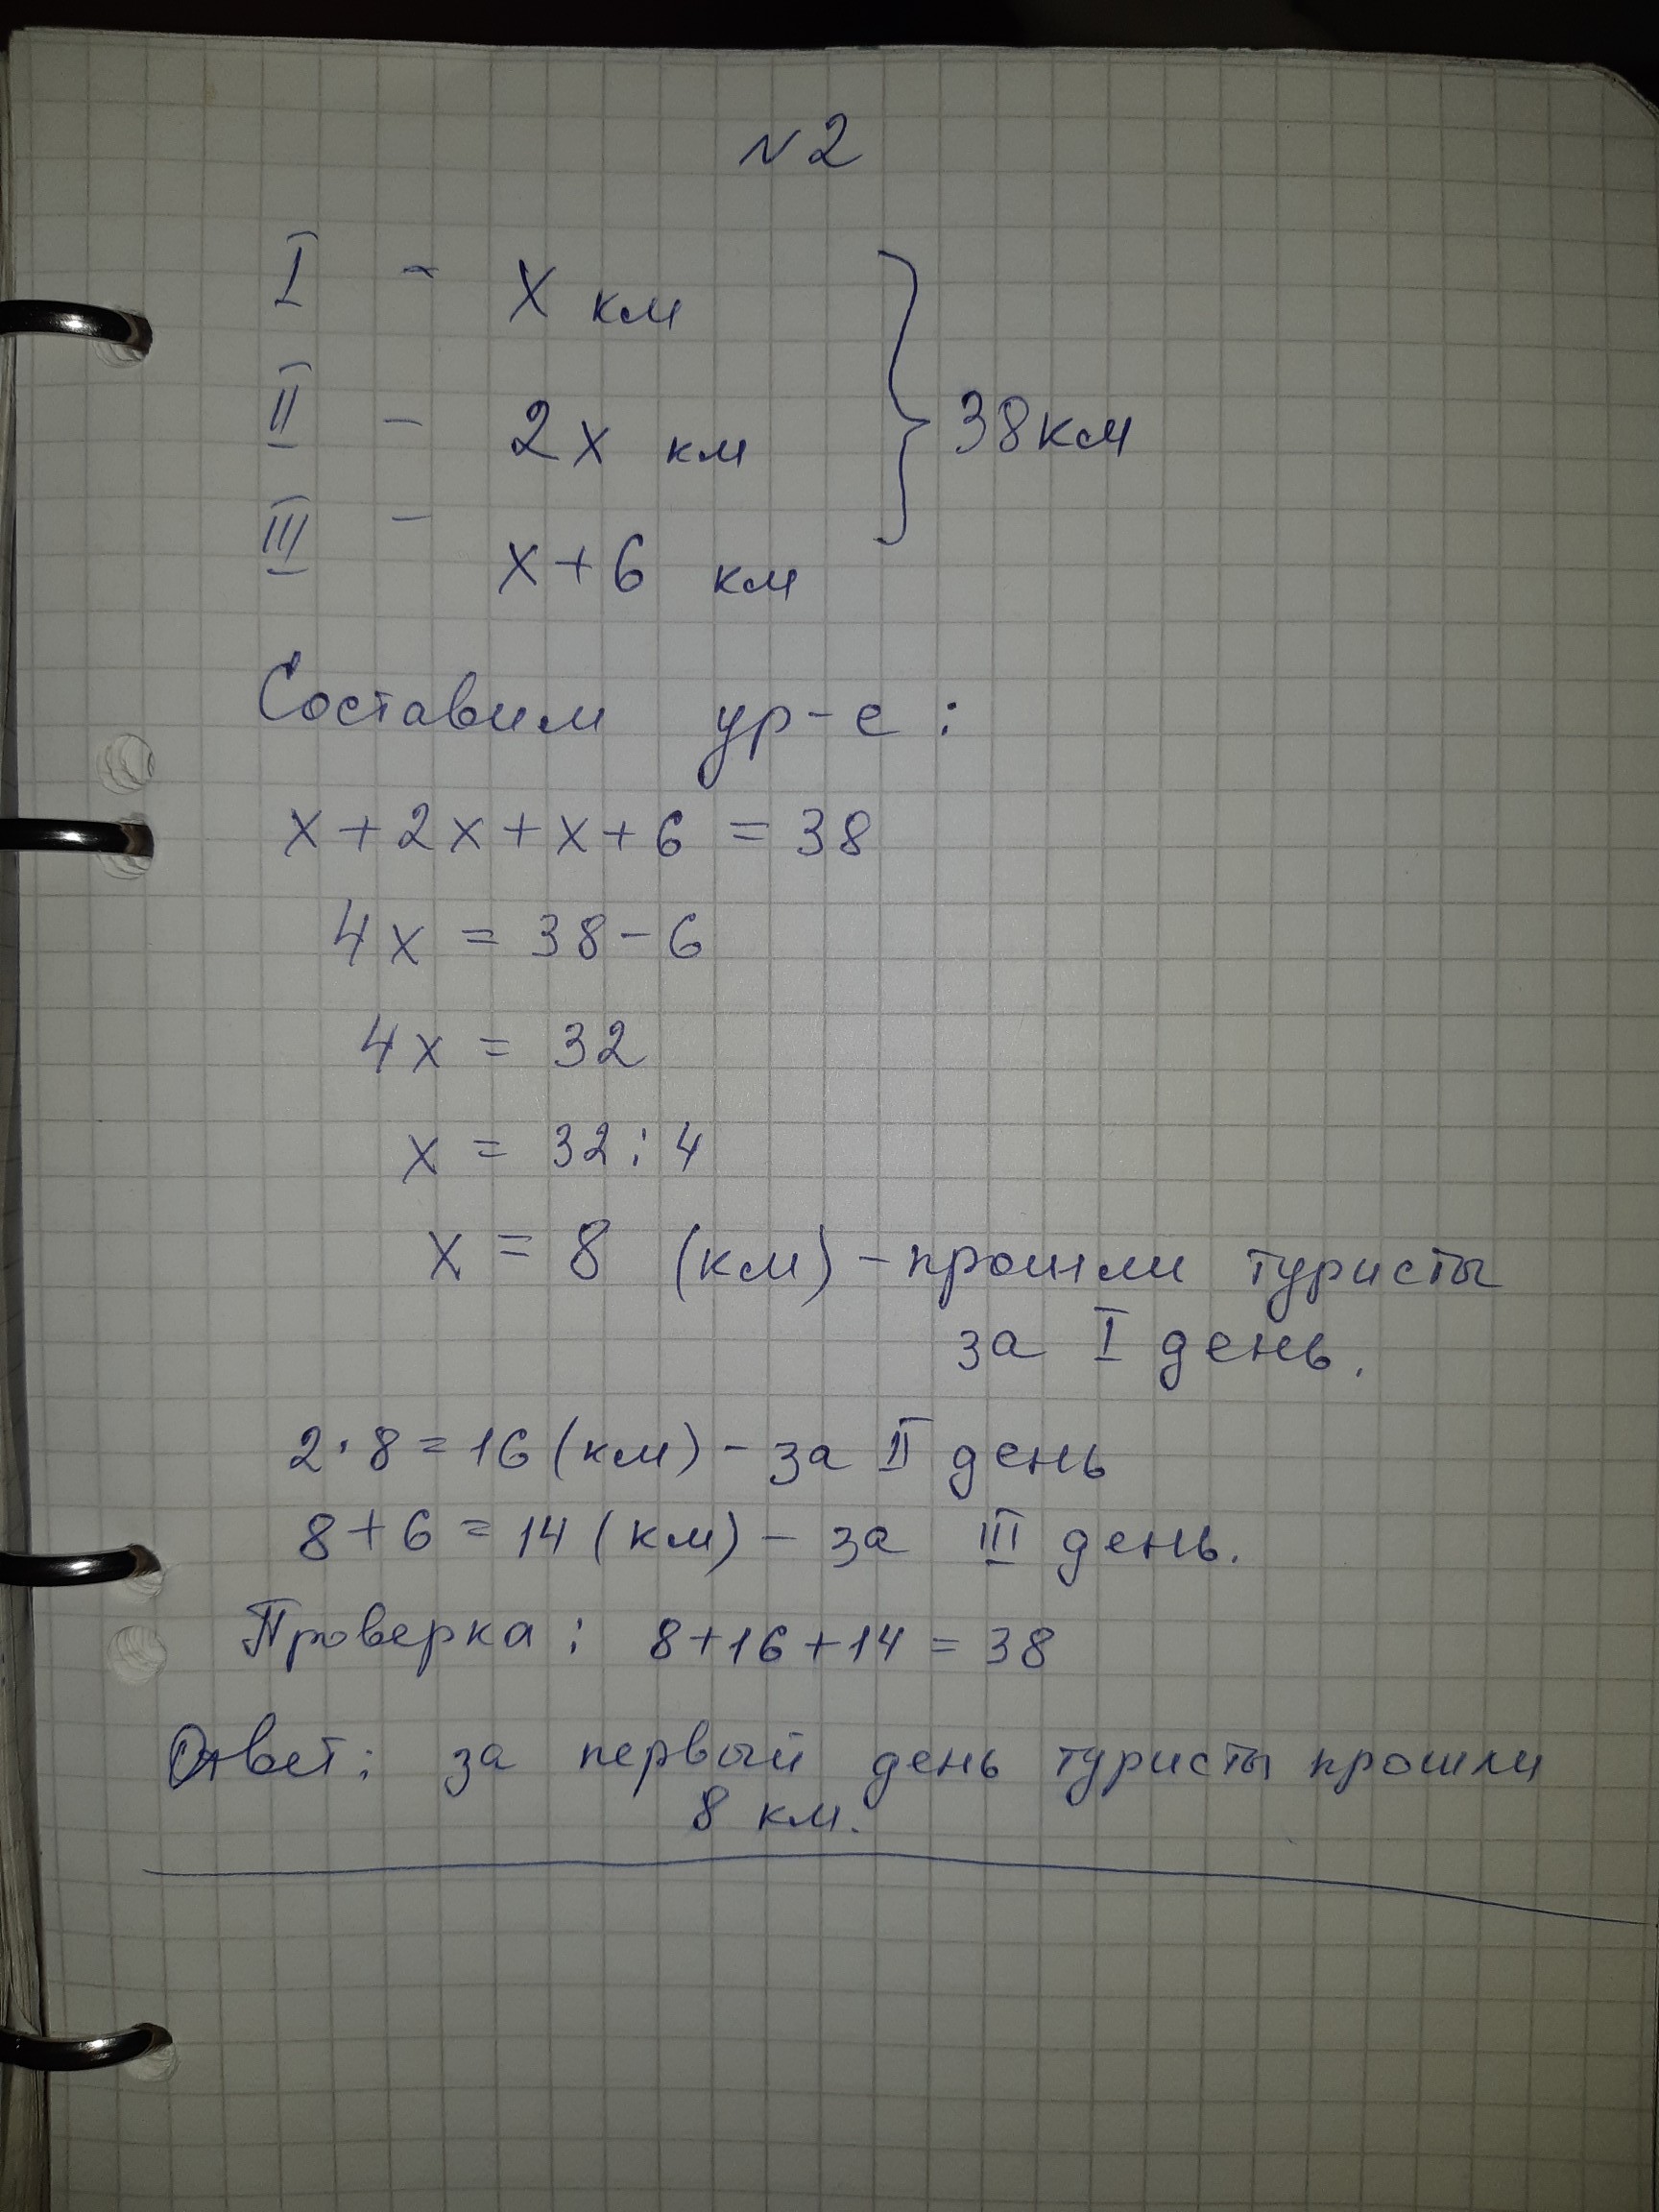 N2
I - x км
II - 2x км
38км
III - x+6 км
Составим ур-е:
x+2x+x+6 = 38
4x = 38-6
4x = 32
x = 32:4
x = 8 (км) - прошли туристы
за I день.
2·8=16 (км) - за II день
8+6=14 (км) - за III день.
Проверка: 8+16+14=38
Ответ: за первый день туристы прошли
8 км.